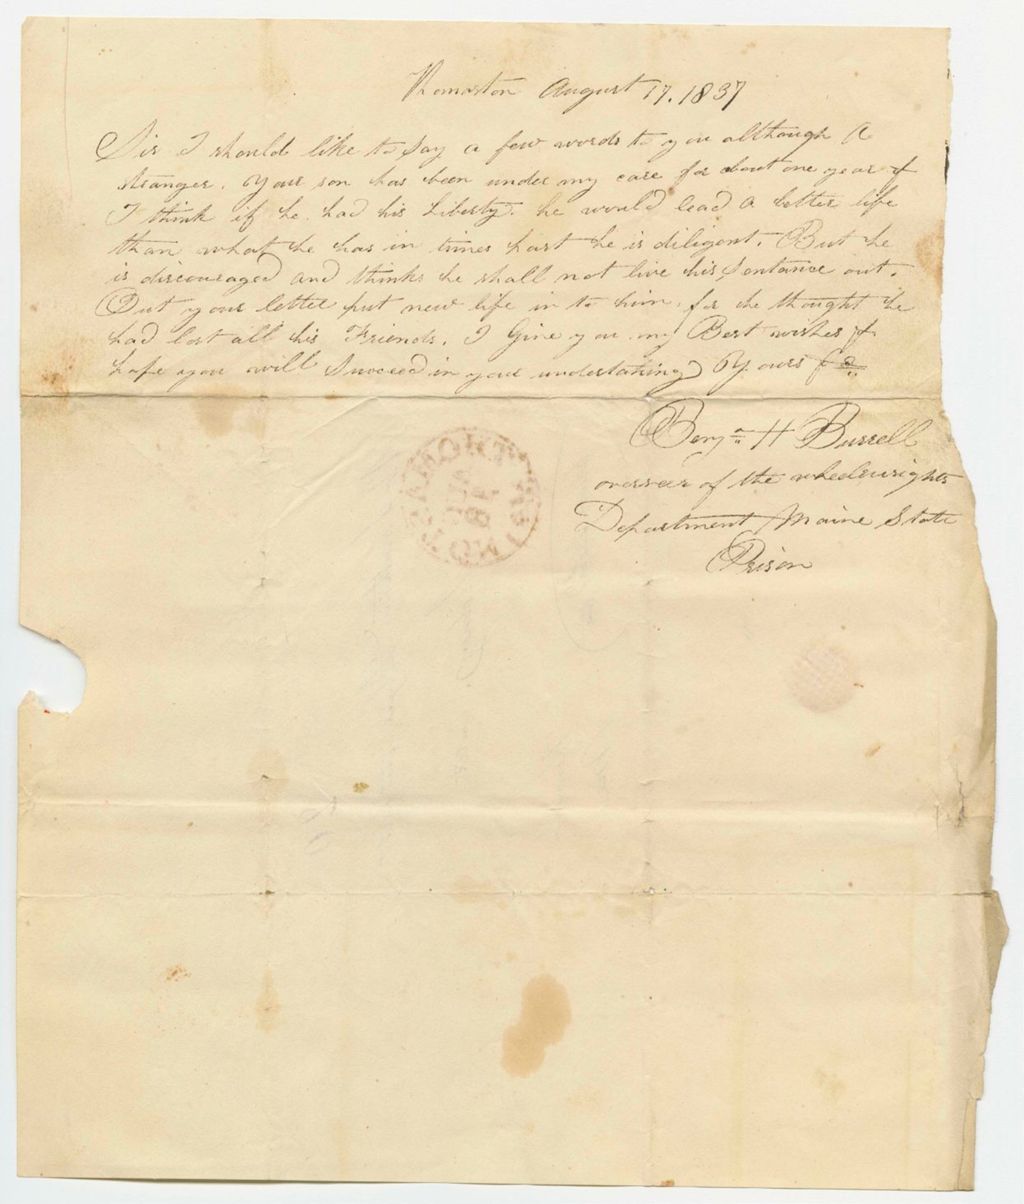 Thomaston August 17. 1837
Sir I should like to Say a few words to you although A
stranger. Your son has been under my care for about one year &
I think if he had his Liberty. he would lead a better life
than what he has in times past he is diligent. But he
is discouraged and thinks he shall not live his Sentance out.
But your letter put new life in to him, for he thought he
had lost all his Friends. I Give you my Best wishes &
hope you will Succeed in your undertaking Yours &c
Benjn H Burrell
overseer of the wheelwrights
Department Maine State
Prison
THOMASTON
AUG
18